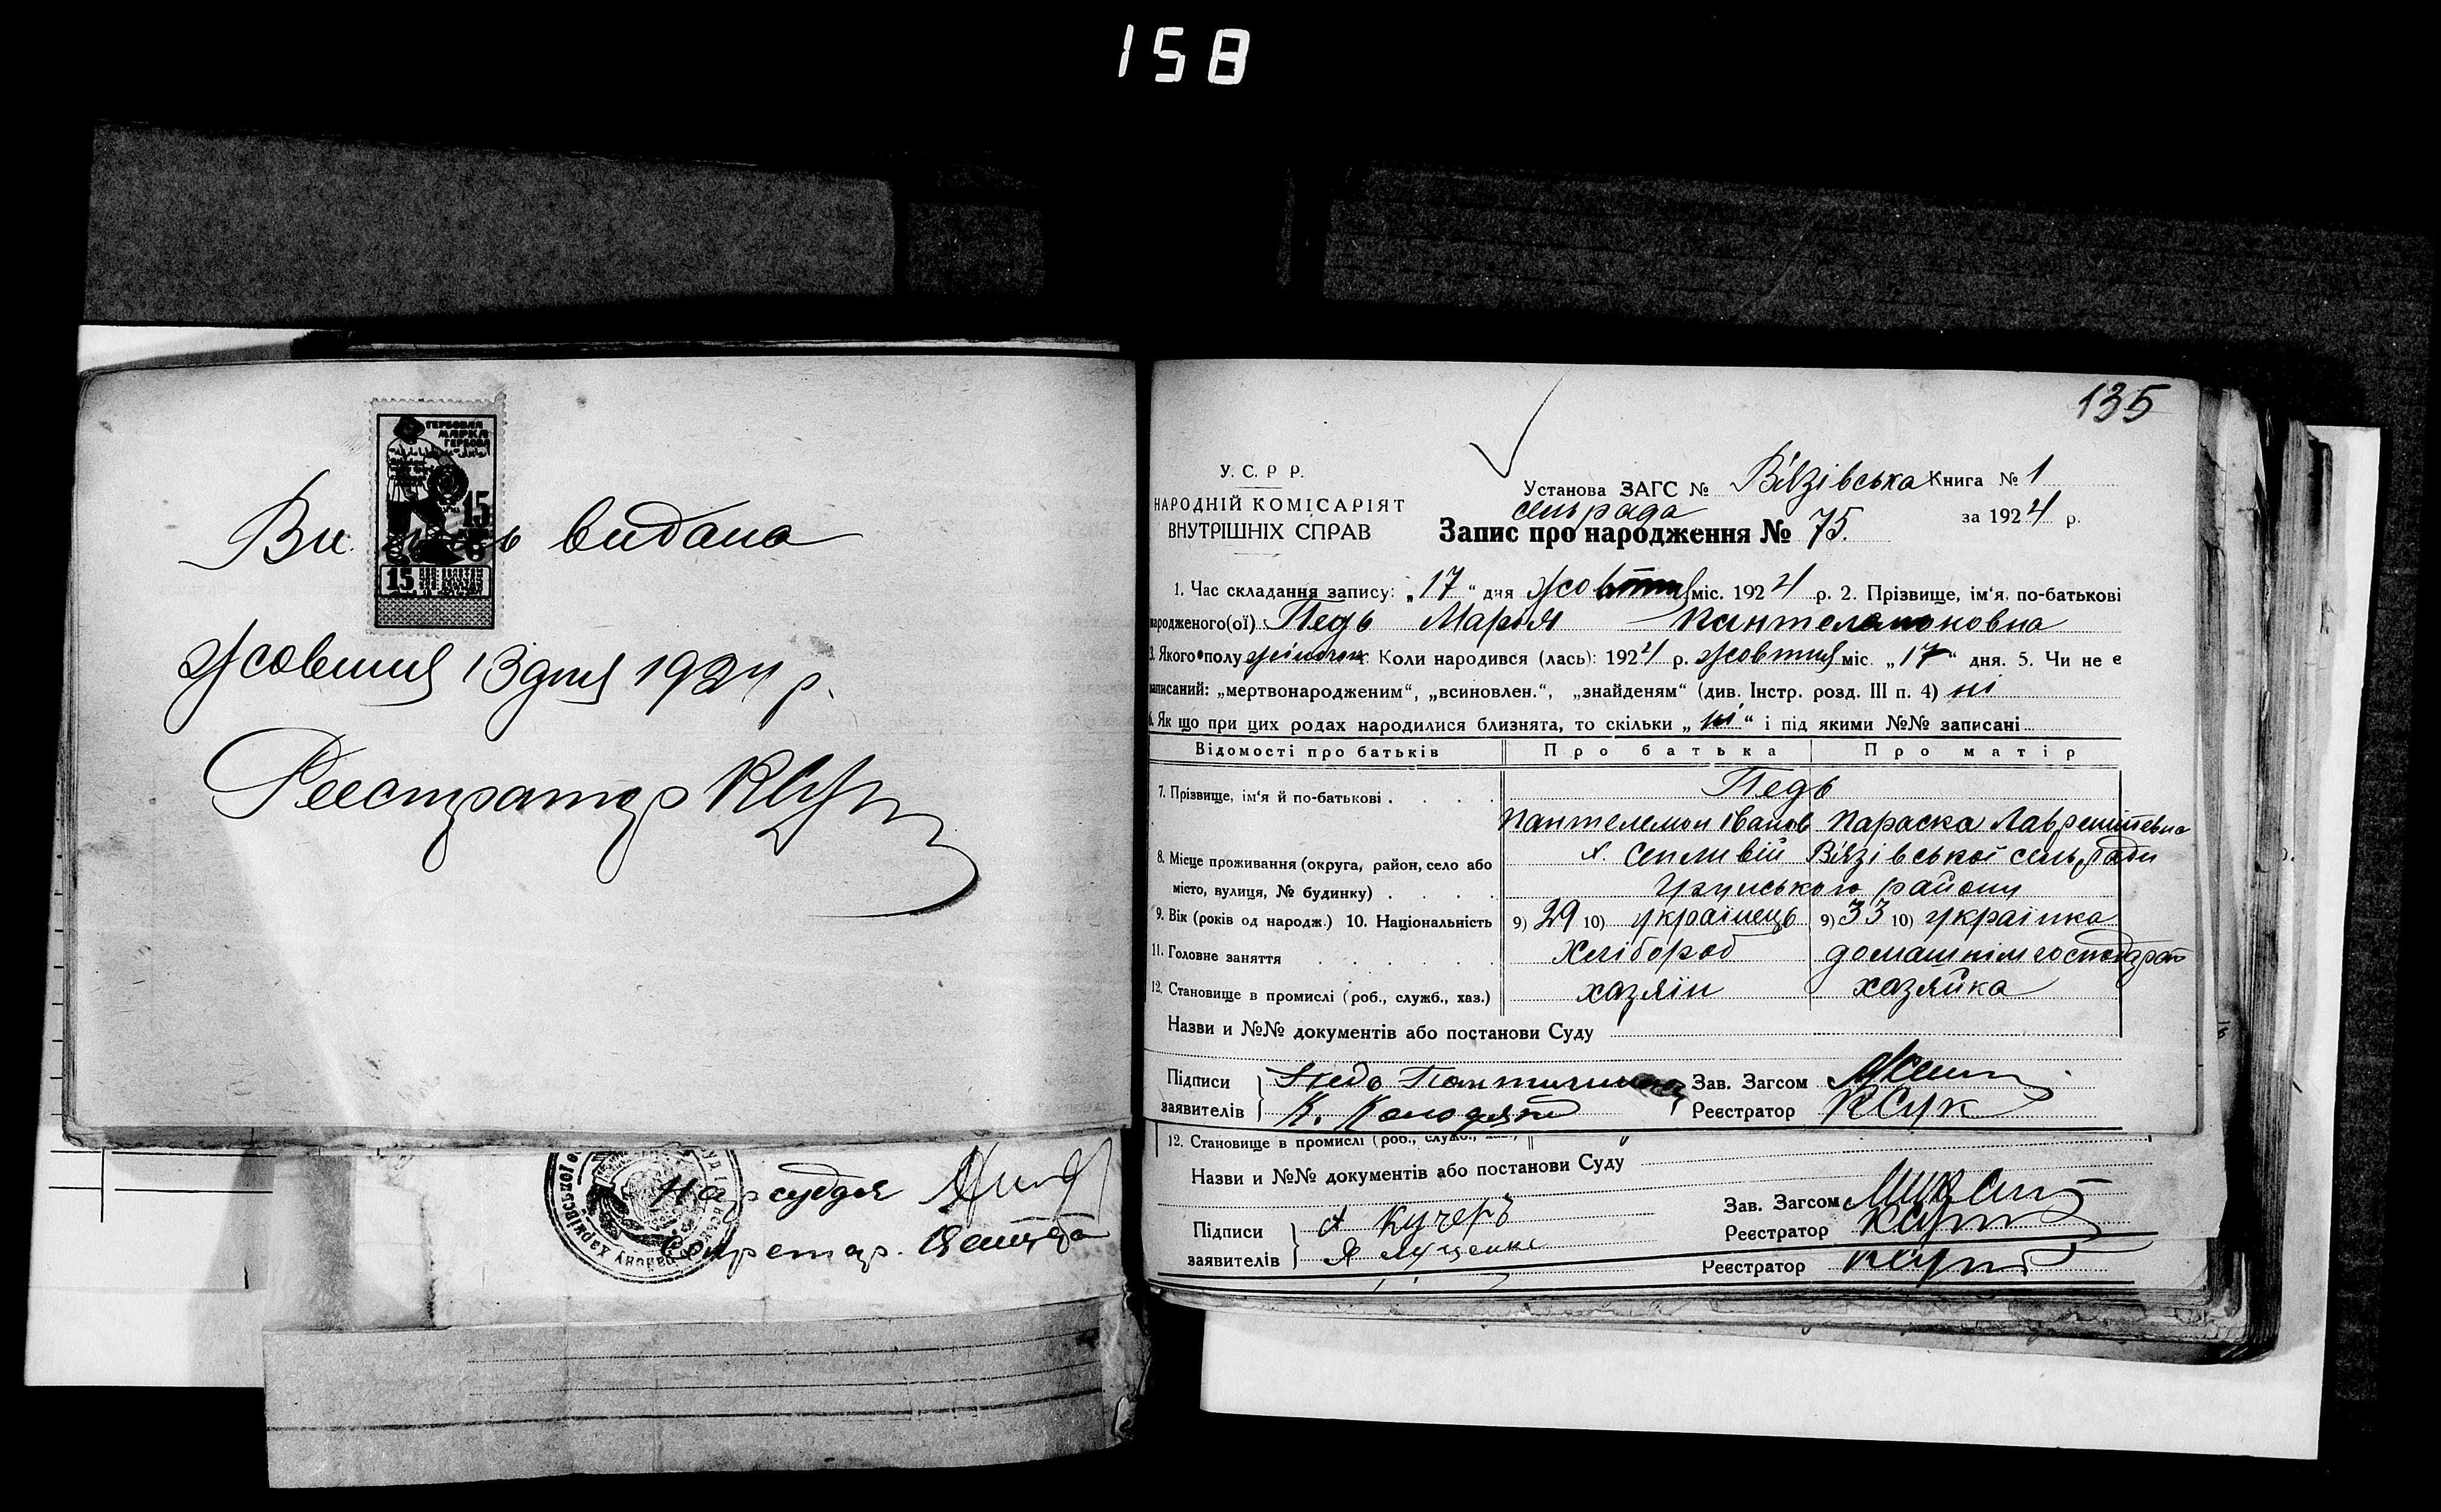 158
ГЕРБОВАЯ
МАРКА
ГЕРБОВА
15
15
Ви ь видана
жовтня 13 дня 1924 р.
Реестратор
135
У. С. Р Р.
НАРОДНІЙ КОМІСАРІЯТ
ВНУТРІШНІХ СПРАВ
Установа ЗАГС № Вʼязівська Книга № 1
сільрада
за 1924 р.
Запис про народження № 75.
1. Час складання запису: „17“ дня жовтня міс. 1924 р. 2. Прізвище, імʼя, по-батькові
народженого(ої) Педь Марія Пантелемоновна
3. Якого полу жіночок. Коли народився (лась): 1924 р. жовтня міс. „17“ дня. 5. Чи не є
записаний: „мертвонародженим“, „всиновлен.“, „знайденям“ (див. Інстр. розд. III п. 4) ні
6. Як що при цих родах народилися близнята, то скільки „ні“ і під якими №№ записані
Відомості про батьків Про батька Про матір
7. Прізвище, імʼя й по-батькові Педь
Пантелемон Іванов Параска Лаврентіевна
8. Місце проживання (округа, район, село або
місто, вулиця, № будинку)
Вʼязівської сільради
району
9. Вік (років од народж.) 10. Національність 9) 29 10) українець 9) 33 10) українка
11. Головне заняття Хлібороб домашнім господар
12. Становище в промислі (роб., служб., хаз.) хазяїн хазяйка
Назви и №№ документів або постанови Суду
Підписи
заявителів
Зав. Загсом
Реєстратор
12. Становище в промислі (роб., служб.,
Назви и №№ документів або постанови Суду
Підписи А Кучеръ
заявителів Я Луценко
Зав. Загсом
Реєстратор
Реєстратор
Нарсуддя
Секретар.